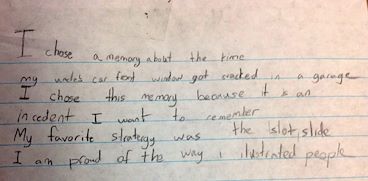 I chose a memory about the time
my uncle's car front window got cracked in a garage
I chose this memory because it is an
incedent I want to remember
My favorite stratergy was the slot, slide
I am proud of the way i illustrated people